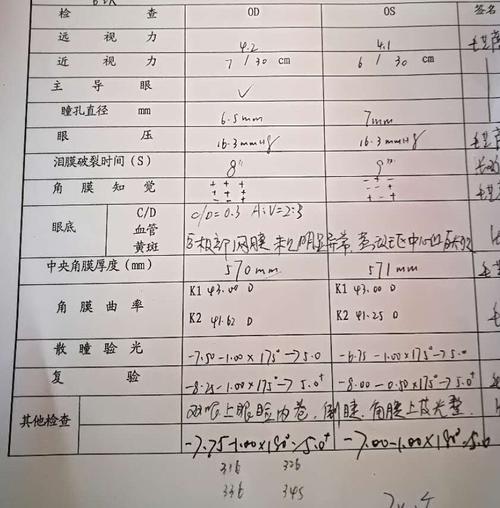 检 查 OD OS 签名
远 视 力 4.2 4.1
近 视 力 7 / 30 cm 6 / 30 cm
主 导 眼 ✓
瞳孔直径 mm 6.5mm 7mm
眼 压 16.3mmHg 16.3mmHg
泪膜破裂时间(S) 8" 9"
角 膜 知 觉 + + + - + +
+ + + - - -
+ + + - + -
眼底 C/D 血管 黄斑 C/D=0.3 A:V=2:3
网膜未见明显异常
中央角膜厚度(mm) 570mm 571mm
角 膜 曲 率 K1 43.00 D K1 43.00 D
K2 41.62 D K2 41.25 D
散 瞳 验 光 -7.50-1.00×175°→5.0 -6.75-1.00×175°→5.0
复 验 -8.25-1.00×175°→5.0⁺ -8.00-0.50×175°→5.0
其他检查 双眼上眼睑内卷,倒睫,角膜上皮完整
-7.75-1.00×180°→5.0⁺ -7.00-1.00×180°→5.0
316 326
336 345